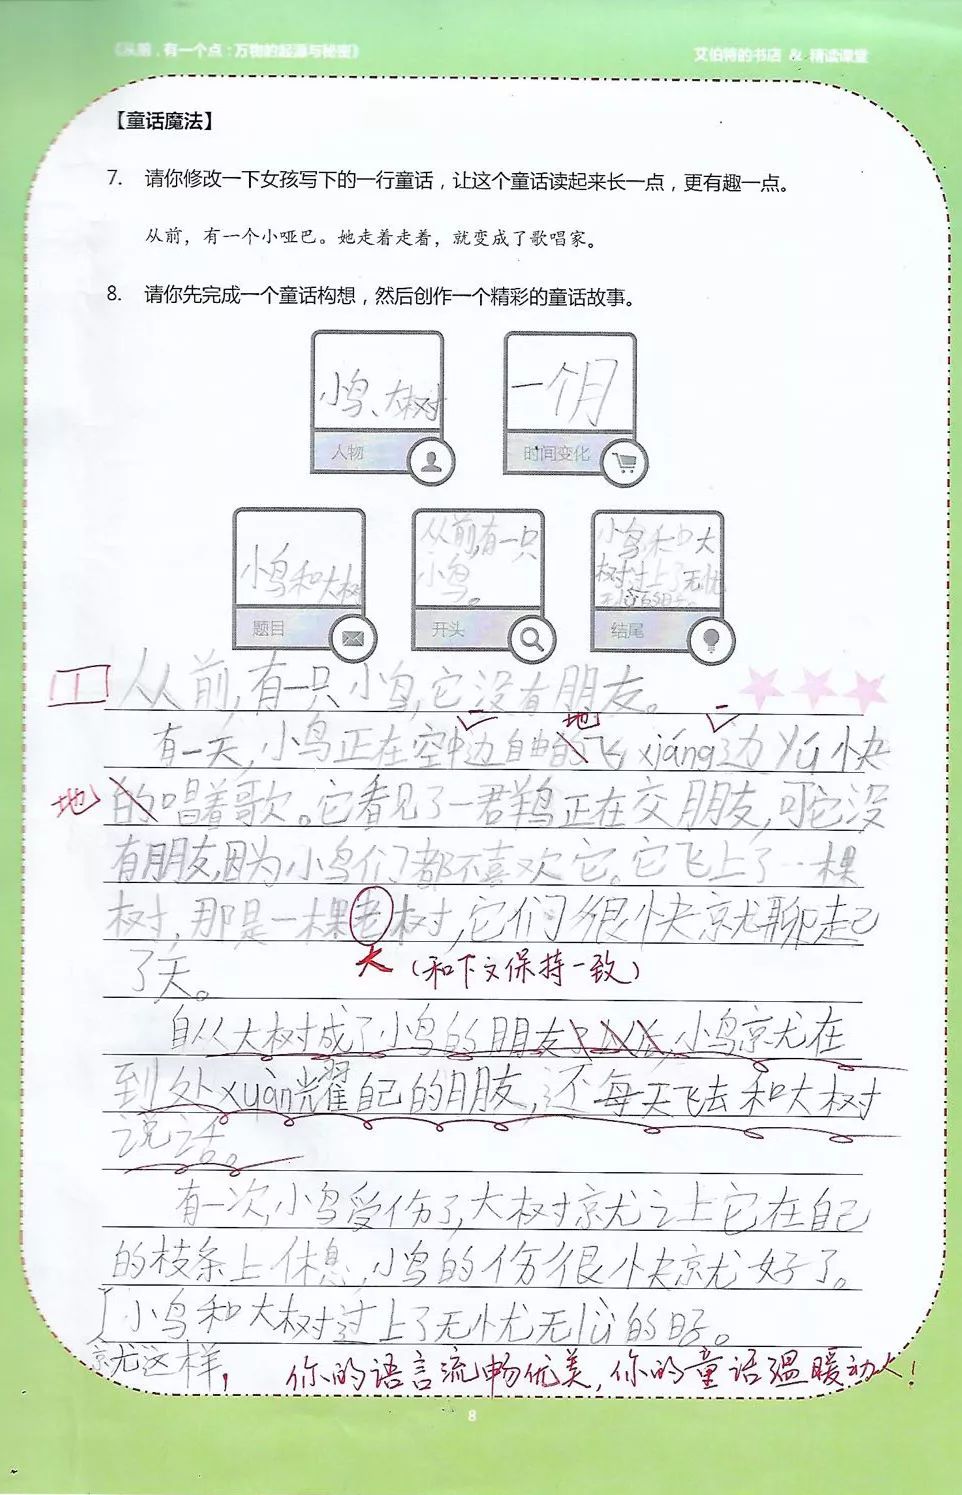 《从前，有一个点：万物的起源与秘密》 艾伯特的书店 & 精读课堂
【童话魔法】
7. 请你修改一下女孩写下的一行童话，让这个童话读起来长一点，更有趣一点。
从前，有一个小哑巴。她走着走着，就变成了歌唱家。
8. 请你先完成一个童话构想，然后创作一个精彩的童话故事。
小鸟、大树
人物
一个月
时间变化
小鸟和大树
题目
从前，有一只
小鸟。
开头
小鸟和大
树过上了无忧
结尾
1 从前，有一只小鸟，它没有朋友。
地
有一天，小鸟正在空中边自由的飞xiáng边yú快
地 的唱着歌。它看见了一群鸟正在交朋友，可它没
有朋友，因为小鸟们都不喜欢它。它飞上了一棵
树，那是一棵老树，它们很快就聊起
大（和下文保持一致）
了天。
自从大树成了小鸟的朋友，小鸟就在
到处xuàn耀自己的朋友，还每天飞去和大树
说话。
有一次，小鸟受伤了，大树就让它在自己
的枝条上休息，小鸟的伤很快就好了。
小鸟和大树过上了无忧无lǜ的日子。
就这样，
你的语言流畅优美，你的童话温暖动人！
8